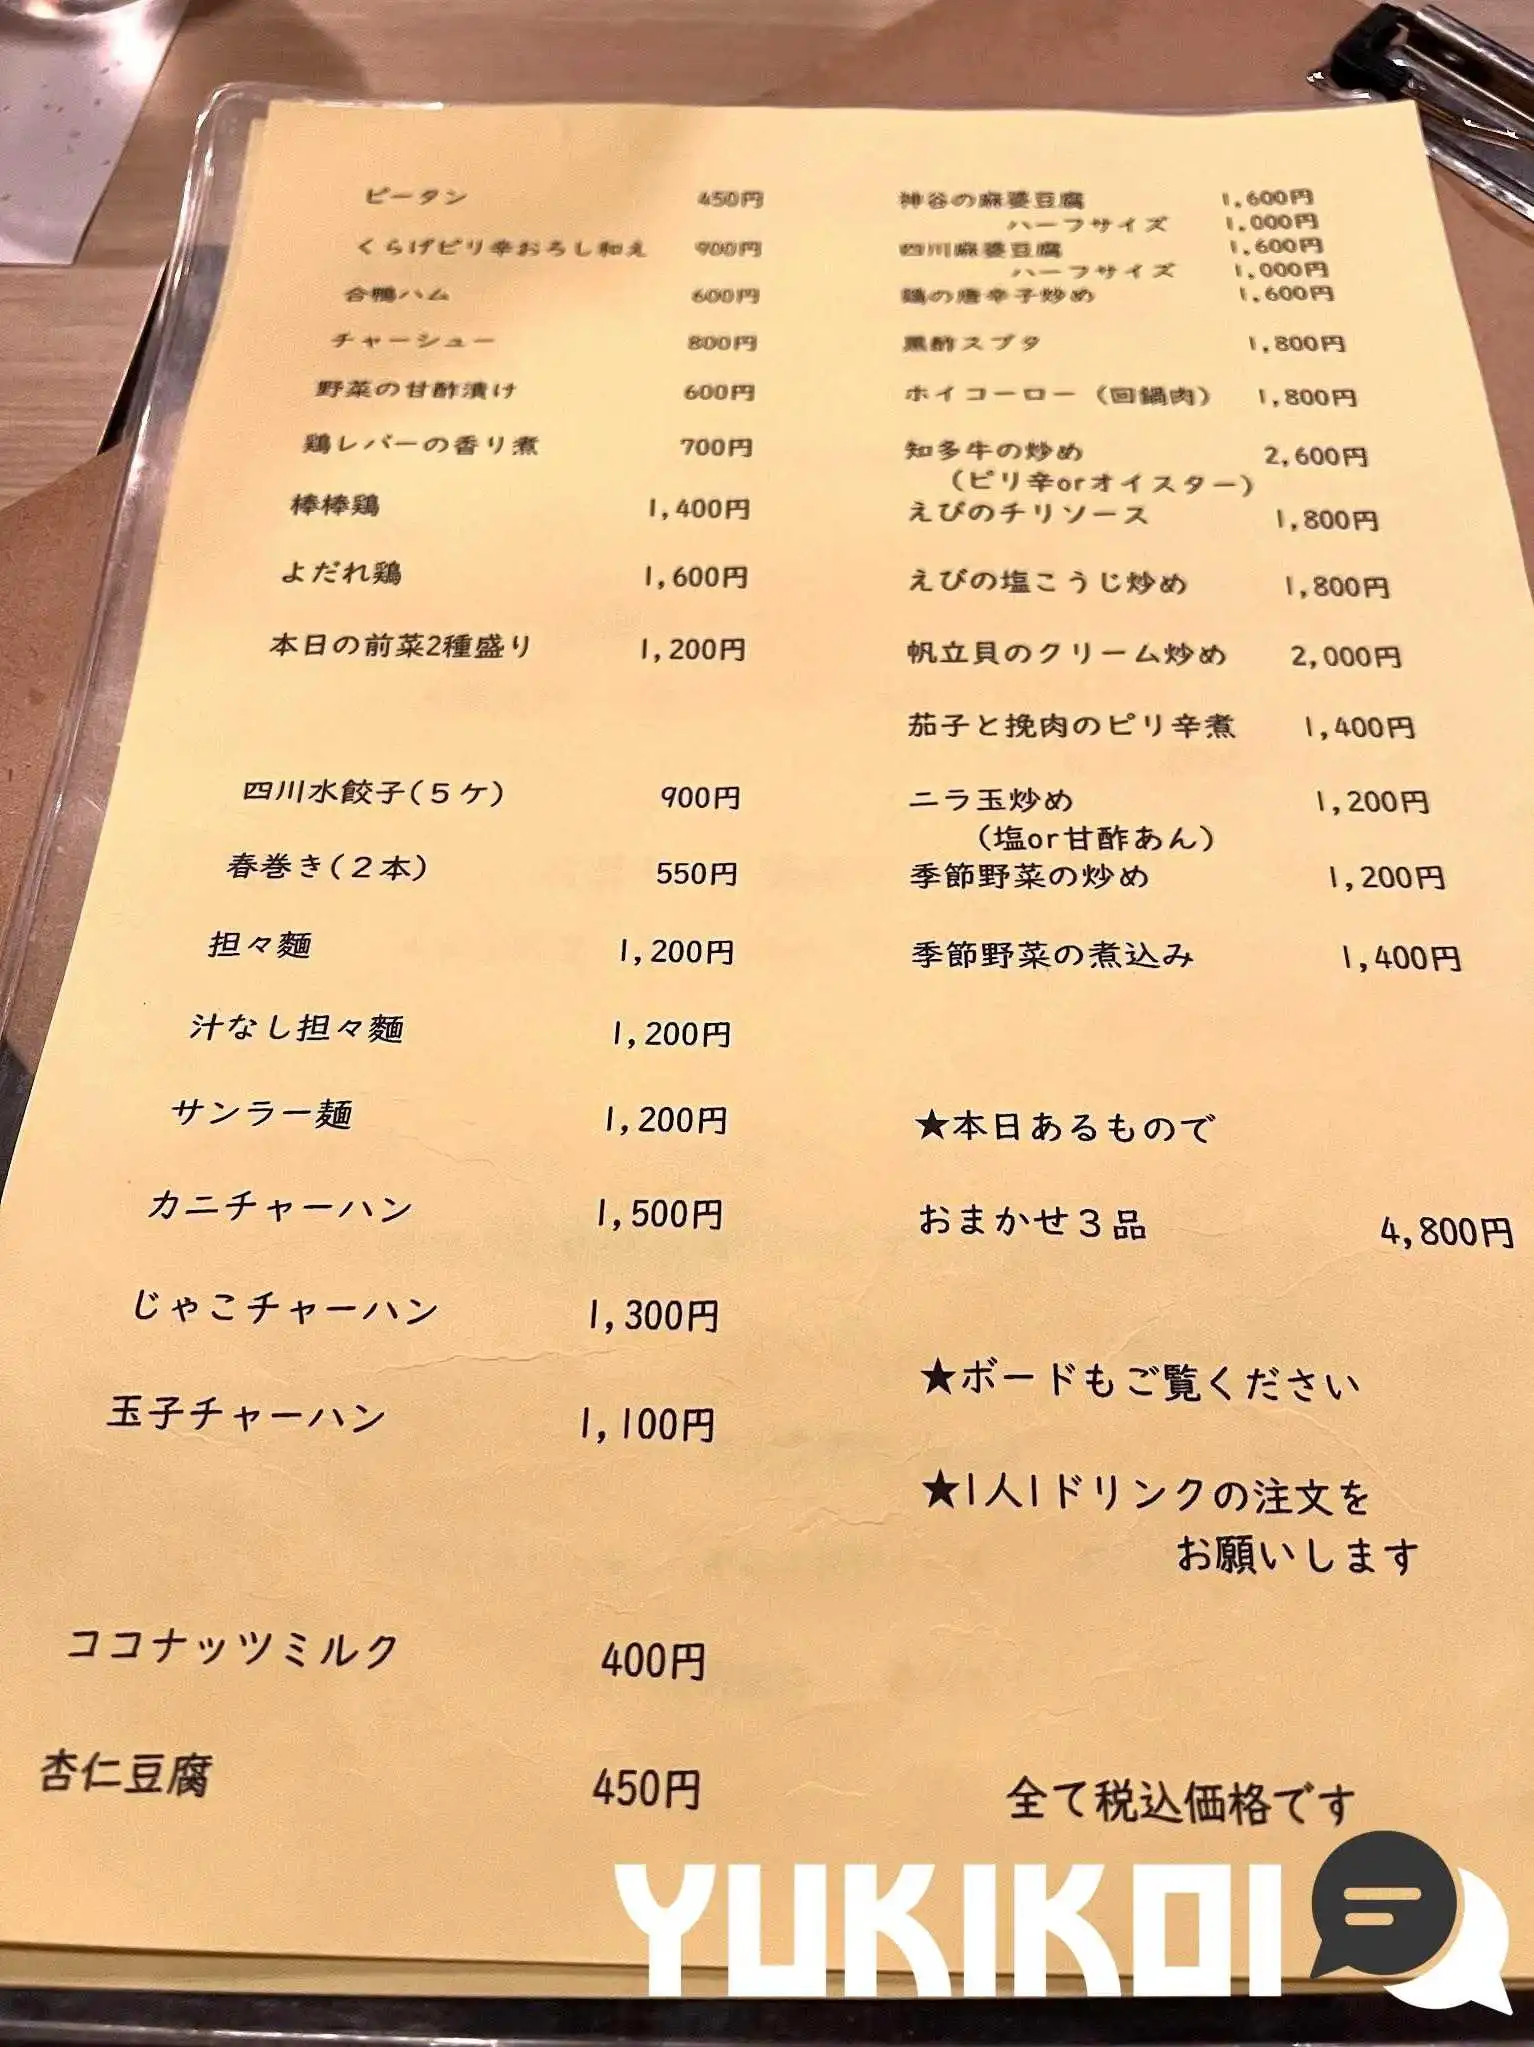 ピータン 450円
くらげピリ辛おろし和え 900円
合鴨ハム 600円
チャーシュー 800円
野菜の甘酢漬け 600円
鶏レバーの香り煮 700円
棒棒鶏 1,400円
よだれ鶏 1,600円
本日の前菜2種盛り 1,200円
四川水餃子(５ケ) 900円
春巻き(２本) 550円
担々麺 1,200円
汁なし担々麺 1,200円
サンラー麺 1,200円
カニチャーハン 1,500円
じゃこチャーハン 1,300円
玉子チャーハン 1,100円
ココナッツミルク 400円
杏仁豆腐 450円
神谷の麻婆豆腐 1,600円
ハーフサイズ 1,000円
四川麻婆豆腐 1,600円
ハーフサイズ 1,000円
鶏の唐辛子炒め 1,600円
黒酢スブタ 1,800円
ホイコーロー（回鍋肉） 1,800円
知多牛の炒め 2,600円
（ピリ辛orオイスター）
えびのチリソース 1,800円
えびの塩こうじ炒め 1,800円
帆立貝のクリーム炒め 2,000円
茄子と挽肉のピリ辛煮 1,400円
ニラ玉炒め 1,200円
（塩or甘酢あん）
季節野菜の炒め 1,200円
季節野菜の煮込み 1,400円
★本日あるもので
おまかせ３品 4,800円
★ボードもご覧ください
★1人1ドリンクの注文を
お願いします
全て税込価格です
YUKIKOI